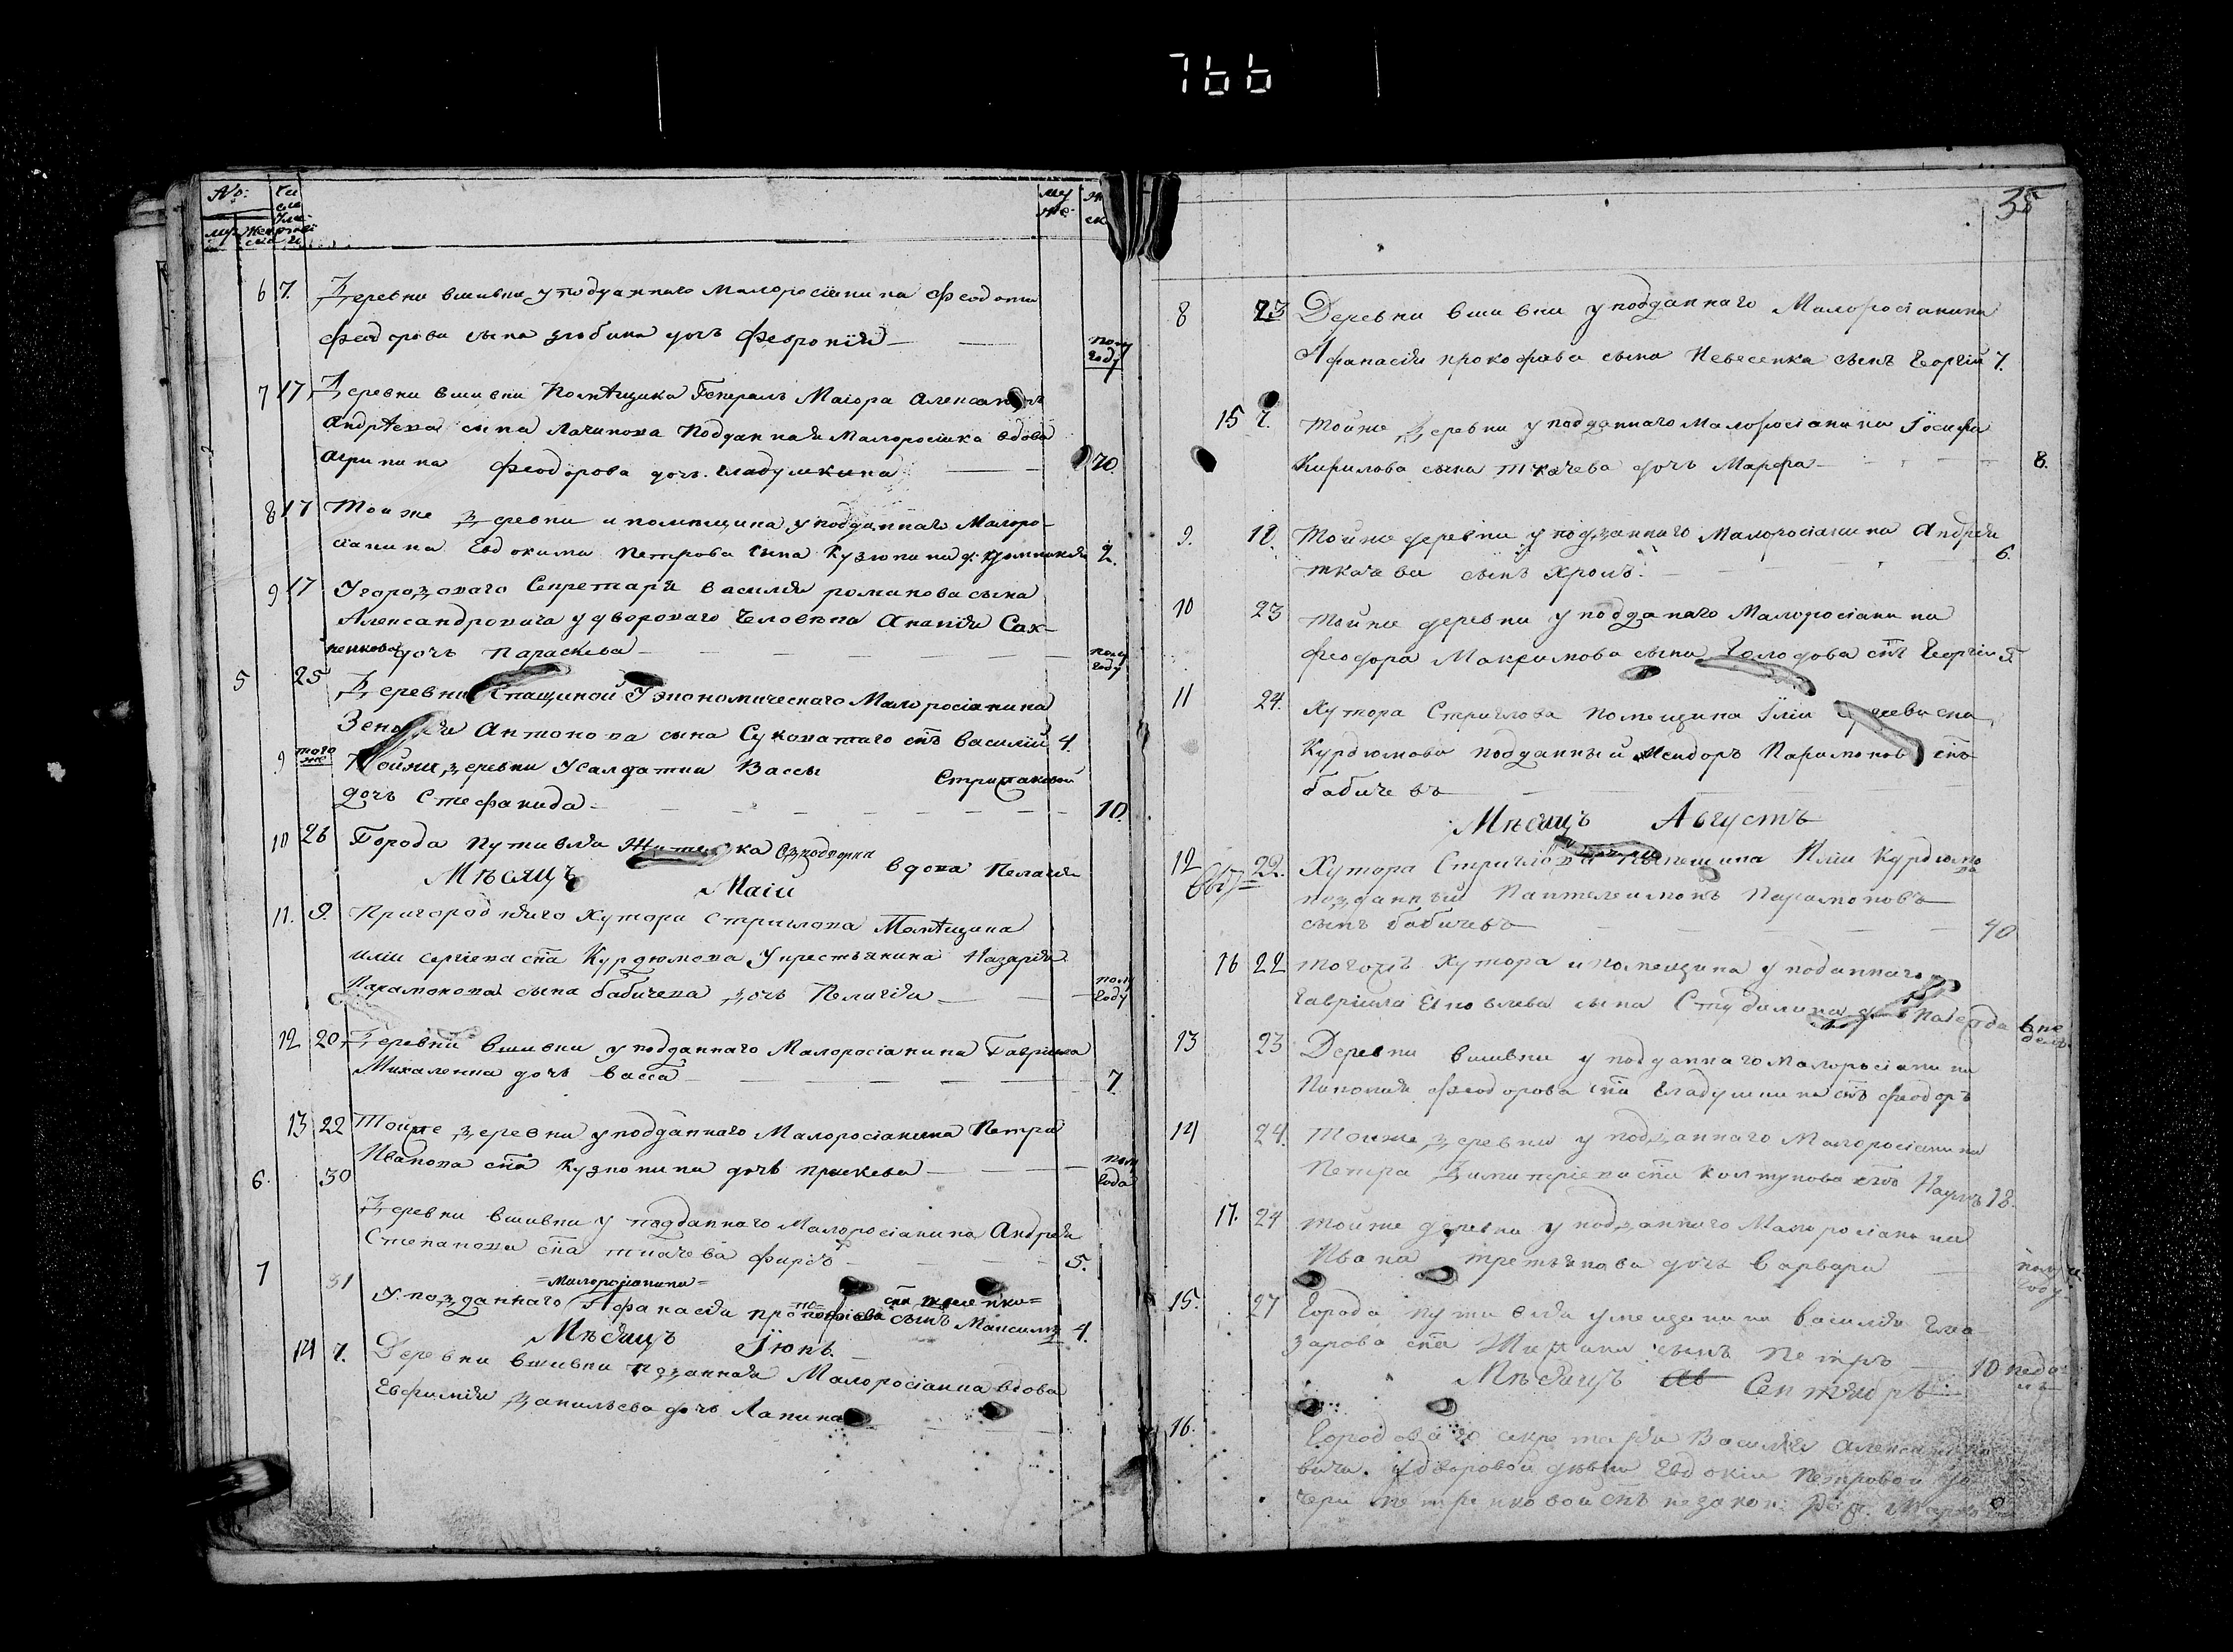 766
No:
числа
муж
женска
муж
женск
6 7. Деревни вшивки у подданнаго Малоросіянина Феодота
Федорова сына злобина дочъ Феврониія полугоду
7 17 Деревни вшивки Помѣщика Генералъ Маіора Александръ
Андрѣева сына Лачинова Подданная Малоросіянка вдова
Агрипина Феодорова дочъ. гладушкина 70.
8 17 Той же деревни и помѣщика у подданнаго Малоро-
сіянина Евдокима Петрова сына Кузюпина д: 2.
9 17 Угородоваго Секретаря василія романова сына
Александровича у двороваго человѣка Ананія Сах-
ненкова дочъ параскева полугоду
5 25 Деревни Спащиной У экономическаго Малоросіянина
Антонова сына Суковатаго снъ василій 4.
9 того же Тойже деревни Усалдатки Вассы
дочъ Стефанида 10.
10 26 Города Путивля вдова Пелагія
Мѣсяцъ Маій
11. 9. Пригороднаго Хутора Стриглова Помѣщика
иліи сергіева сна Курдюмова У крестьянина Назарія
Парамонова сына бабичева дочъ Пелагія полугоду
12 20 Деревни вшивки у подданнаго Малоросіянина Гавриила
Михаленка дочъ васса 7.
13 22 Тойже деревни у подданнаго Малоросіянина Петра
Иванова сна Кузюпина дочъ прискева полугода
6. 30
Деревни вшивки у подданнаго Малоросіянина Андрея
Степанова сна ткачева фирсъ 5.
=Малоросіянина=
7 31 У подданнаго Афанасія сынъ Максимъ 4.
Мѣсяцъ Іюнь.
14 7. Деревни вшивки подданная Малоросіянка вдова
Евфимія данильева дочъ Лапина
35
8 23 Деревни вшивки у подданнаго Малоросіанина
Афанасія прокофіева сына Невесенка сынъ георгій 7.
15 7. Тойже деревни у подданнаго Малоросіанина Іосифа
Кирилова сына ткачева дочъ Марфа 8.
9. 12. Тойже деревни у подданнаго Малоросіанина Андрея
ткачева сынъ Хролъ. 6.
10 23 Тойже деревни у подданнаго Малоросіанина
Феодора Максимова сына Голодова снъ Георгій 5.
11 24. Хутора Стриглова помещика Іліи Сергеева сна
Курдюмова подданный Исидоръ Парамоновъ снъ
бабичевъ
Мѣсяцъ Августъ
12 22. Хутора Стриглова помещика Иліи Курдюмова
подданный Пантелеимонъ Парамоновъ
сынъ бабичевъ 40
16 22 тогожъ Хутора и помещика у поданнаго
гавріила сына 6 недель.
13 23 Деревни вшивки у подданнаго малоросіанина
Феодорова сна Гладушкина снъ феодоръ
14 24. Тойже деревни у подданнаго Малоросіанина
Петра Димитріева сна Колтунова снъ Наумъ 18.
17. 24 тойже деревни у подданнаго Малоросіанина
Ивана третьякова дочъ варвара полугоду
15. 27 Города путивля умещанина василія Гла-
зарова сна сынъ петръ 10 недель
Мѣсяцъ Септября
16. Городоваго секретаря Василія Александро
вича. удворовой девки Евдокіи Петровой до
чери снъ незакон: